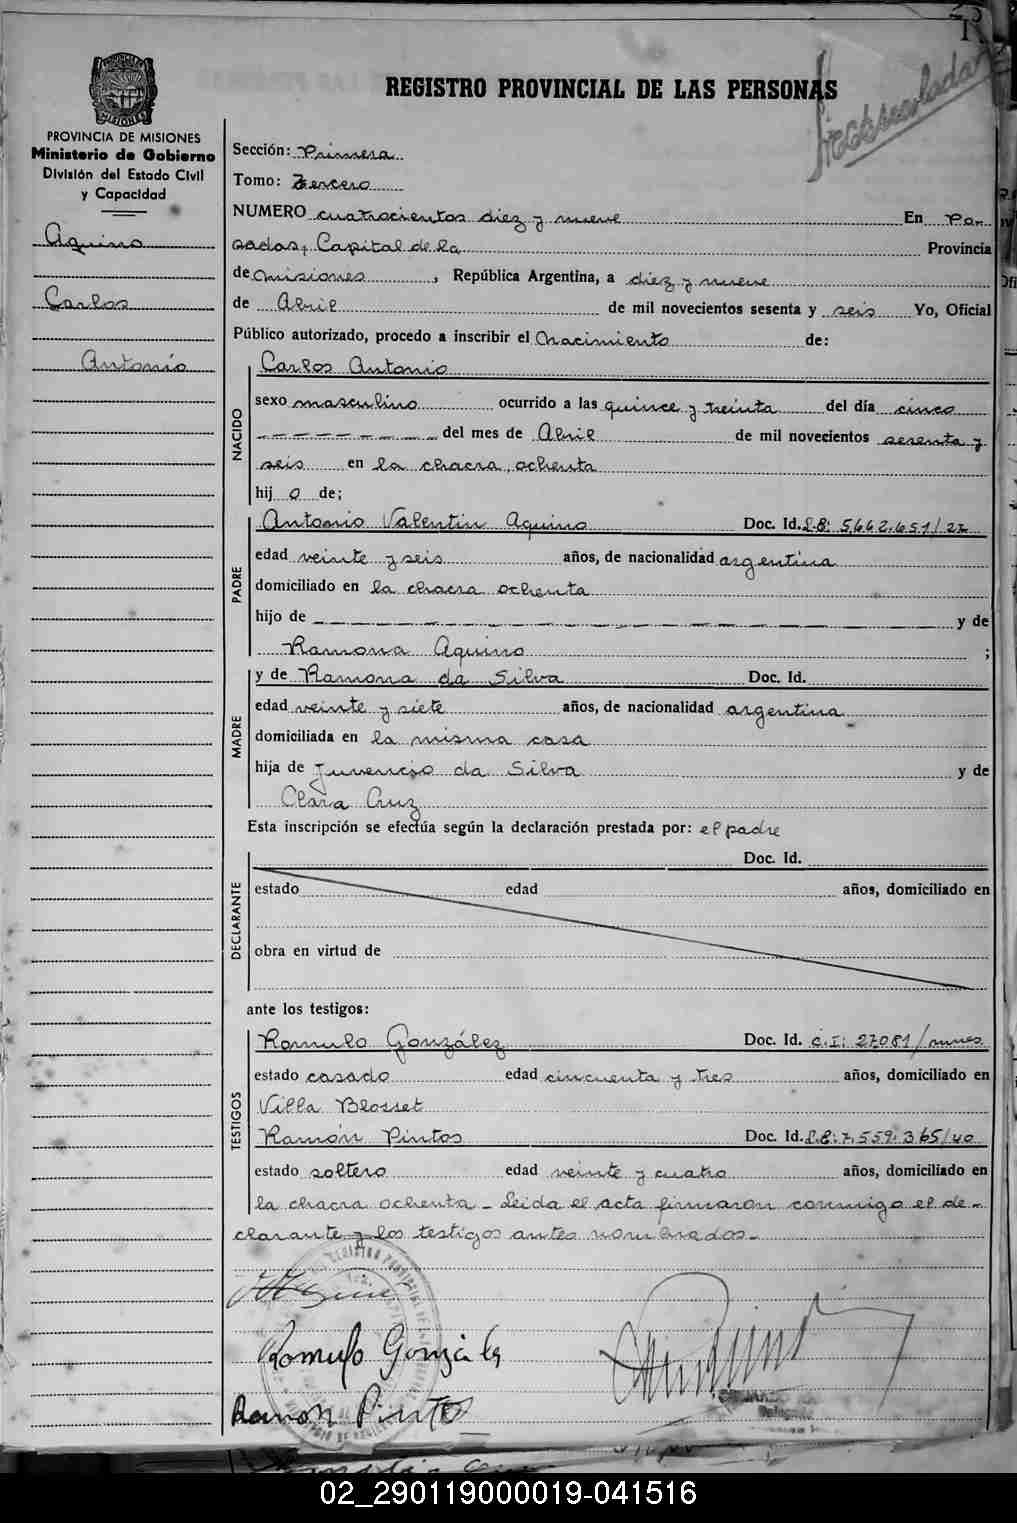 REGISTRO PROVINCIAL DE LAS PERSONAS
MISIONES
PROVINCIA DE MISIONES
Ministerio de Gobierno
División del Estado Civil
y Capacidad
Aquino
Carlos
Antonio
Sección: Primera
Tomo: Tercero
NUMERO cuatrocientos diez y nueve En Po-
sadas, Capital de la Provincia
de Misiones, República Argentina, a diez y nueve
de Abril de mil novecientos sesenta y seis Yo, Oficial
Público autorizado, procedo a inscribir el Nacimiento de:
NACIDO
Carlos Antonio
sexo masculino ocurrido a las quince y treinta del día cinco
del mes de Abril de mil novecientos sesenta y
seis en la chacra ochenta
hij o de;
PADRE
Antonio Valentin Aquino Doc. Id. L.E: 5.662.651/27
edad veinte y seis años, de nacionalidad argentina
domiciliado en la chacra ochenta
hijo de y de
Ramona Aquino ;
MADRE
y de Ramona da Silva Doc. Id.
edad veinte y siete años, de nacionalidad argentina
domiciliada en la misma casa
hija de Juvencio da Silva y de
Clara Cruz
Esta inscripción se efectúa según la declaración prestada por: el padre
DECLARANTE
Doc. Id.
estado edad años, domiciliado en
obra en virtud de
ante los testigos:
TESTIGOS
Romulo González Doc. Id. C.I: 27081/mnes
estado casado edad cincuenta y tres años, domiciliado en
Villa Blosset
Ramón Pintos Doc. Id. L.E: 7.559.365/40
estado soltero edad veinte y cuatro años, domiciliado en
la chacra ochenta - Leida el acta firmaron conmigo el de-
clarante y los testigos antes nombrados.-
Romulo Gonzáles
Ramon Pintos
02_290119000019-041516